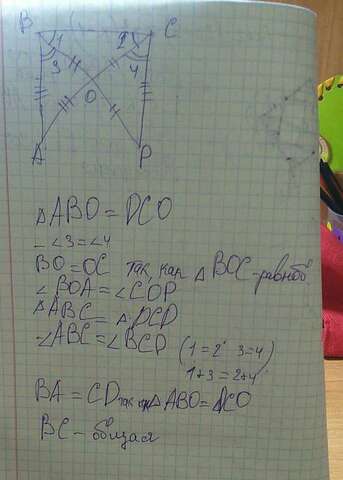 B C
1 2
3 4
O
A P
△ABO = DCO
- ∠3=∠4
BO=OC так, как △ BOC-равноб
∠ BOA = ∠COP
△ABC = △ DCD
∠ABC = ∠BCD (1=2 3=4)
1+3=2+4
BA = CD так △ ABO = DCO
BC - общая